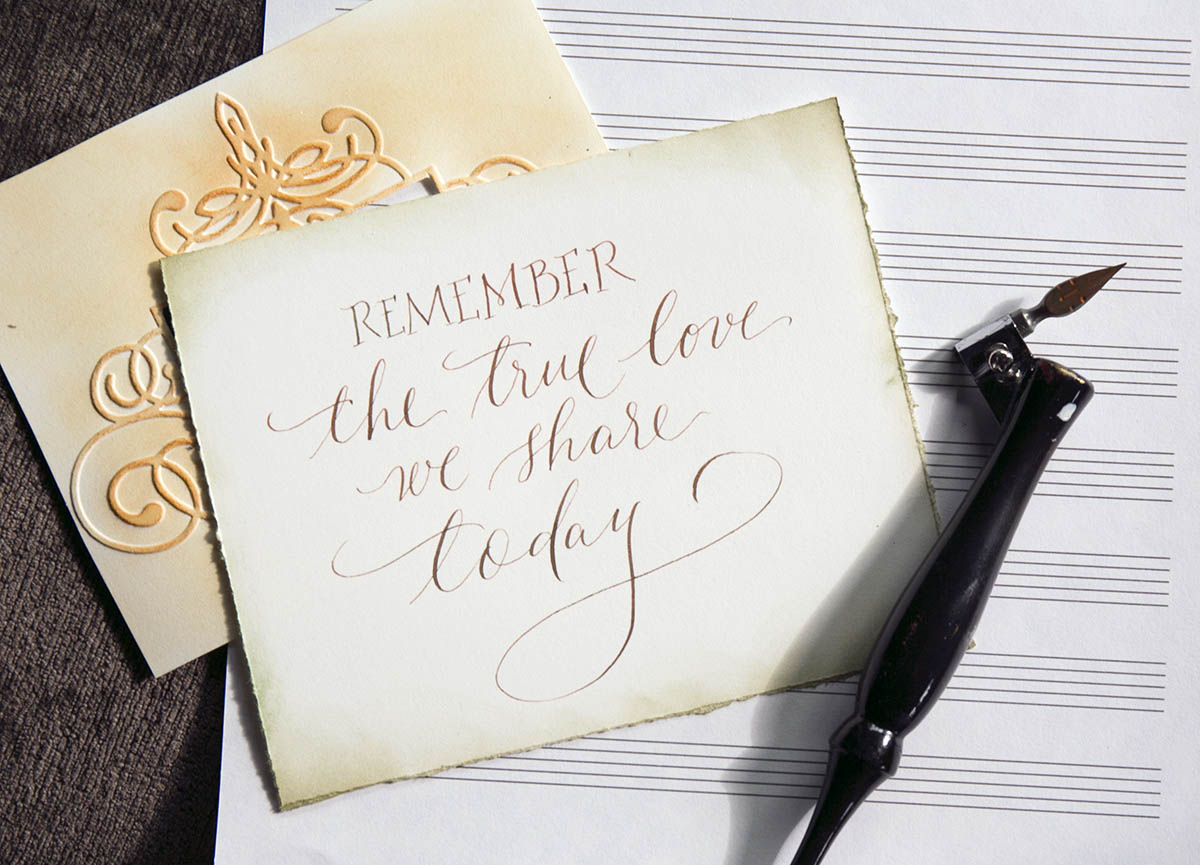 REMEMBER
the true love
we share
today